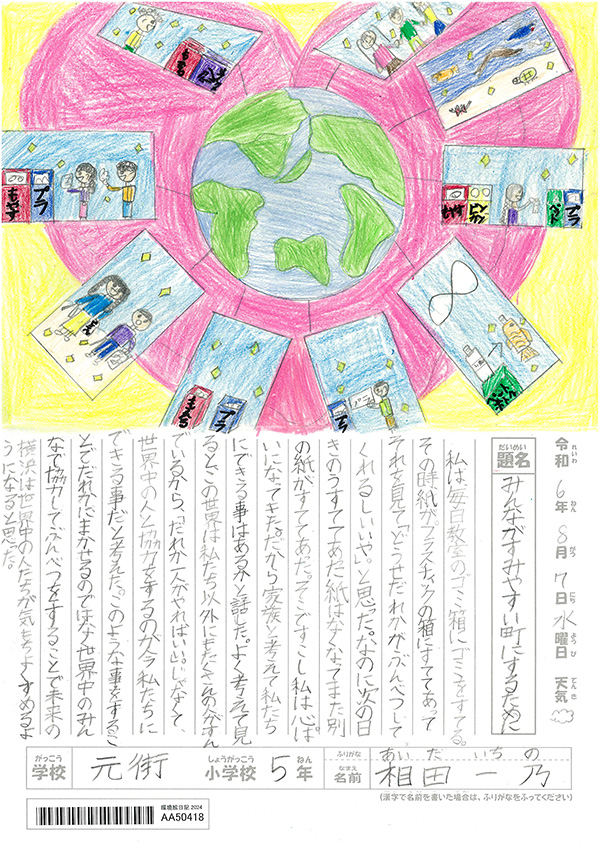 もえる
プラ
もやす
プラ
もやす
ビン
カン
ペット
プラ
ペット
ボトル
もえる
プラ
プラ
令和6年8月7日水曜日 天気
れいわ ねん がつ にち ようび てんき
だいめい
題名
みんながすみやすい町にするために
私は、毎日教室のゴミ箱にゴミをすてる。
その時紙がプラスチックの箱にすててあって
それを見て「どうせだれかがぶんべつして
くれるしいいや。」と思った。なのに次の日
きのうすててあった紙はなくなってまた別
の紙がすててあった。そこですこし私は心ぱ
いになってきた。だから家族と考えて私たち
にできる事はあるかと話した。よく考えて見
るとこの世界は私たち以外にもたくさんの人がすん
でいるから、「だれか一人がやればいい。」じゃなくて、
世界中の人と協力をするのが今私たちに
できる事だと考えた。このような事をするこ
とでだれかにまかせるのではなく世界中のみん
なで協力してぶんべつをすることで未来の
横浜は世界中の人たちが気もちよくすめるよ
うになると思った。
がっこう
学校
元街
しょうがっこう
小学校
5年
ねん
ふりがな
あいだ いちの
なまえ
名前
相田 一乃
(漢字で名前を書いた場合は、ふりがなをふってください)
環境絵日記 2024
AA50418